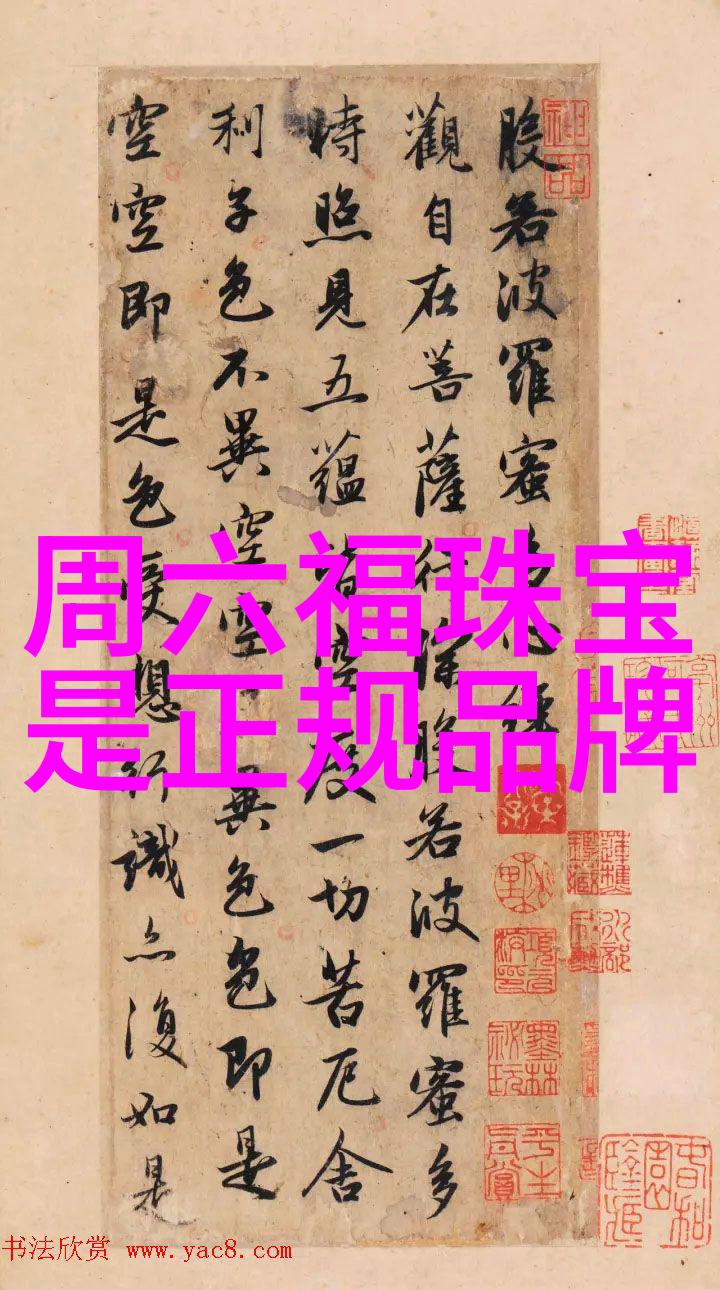 周六福珠宝
是正规品牌
般若波羅蜜多心經
觀自在菩薩行深般若波羅蜜多
時照見五蘊皆空度一切苦厄舍
利子色不異空空不異色色即是
空空即是色受想行識亦復如是
神品
墨林
祕玩
书法欣赏 www.yac8.com